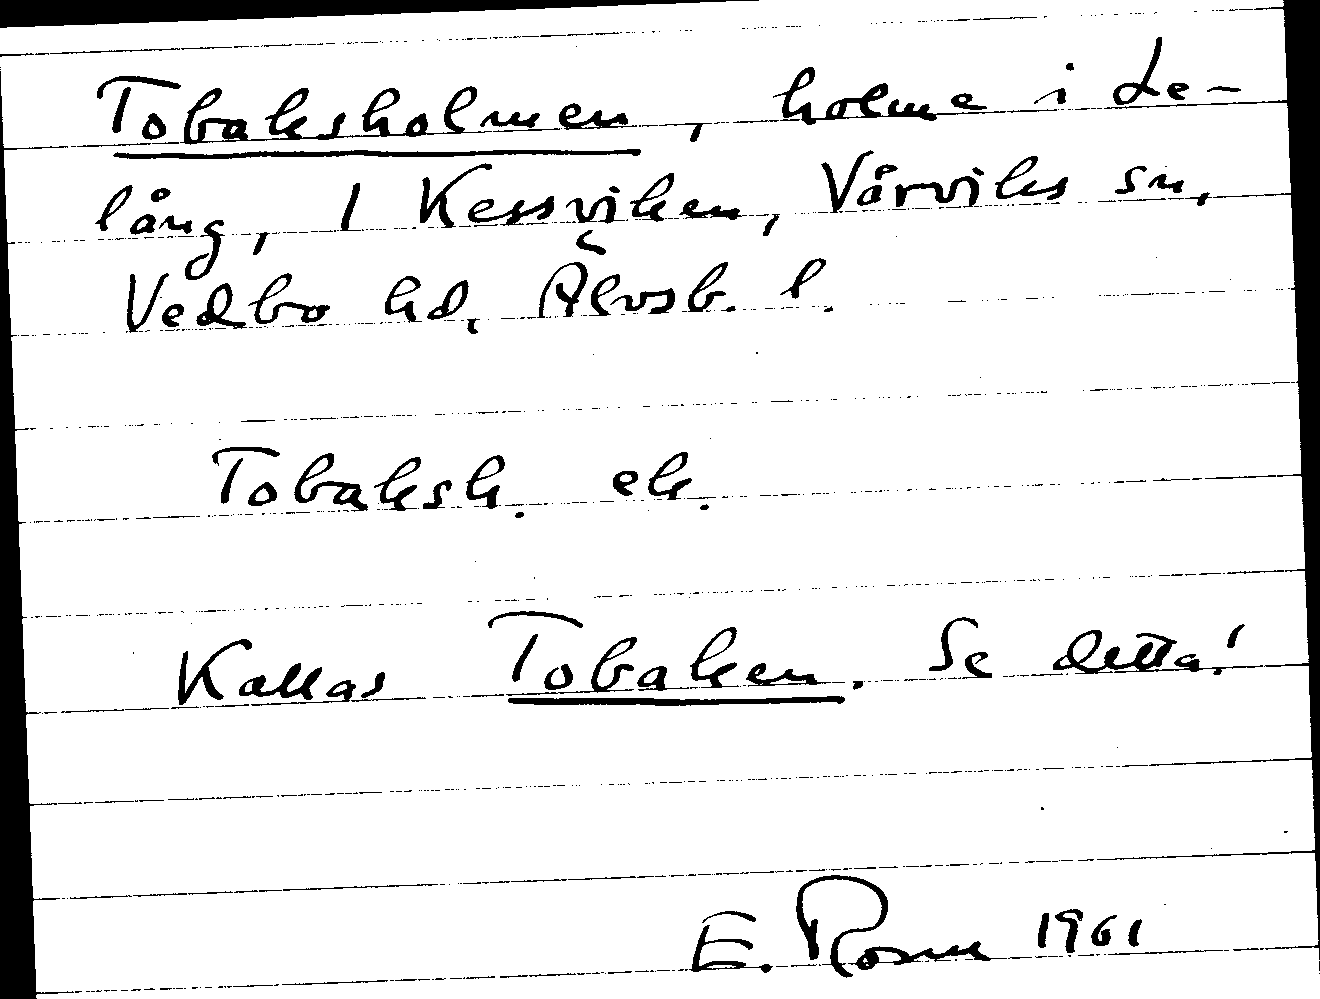 Tobaksholmen, holme i Le-
lång, I Kessviken, Vårviks sn,
Vedbo hd, Älvsb. l.
Tobaksh. ek.
Kallas Tobaken. Se detta!
E. Rosm 1961